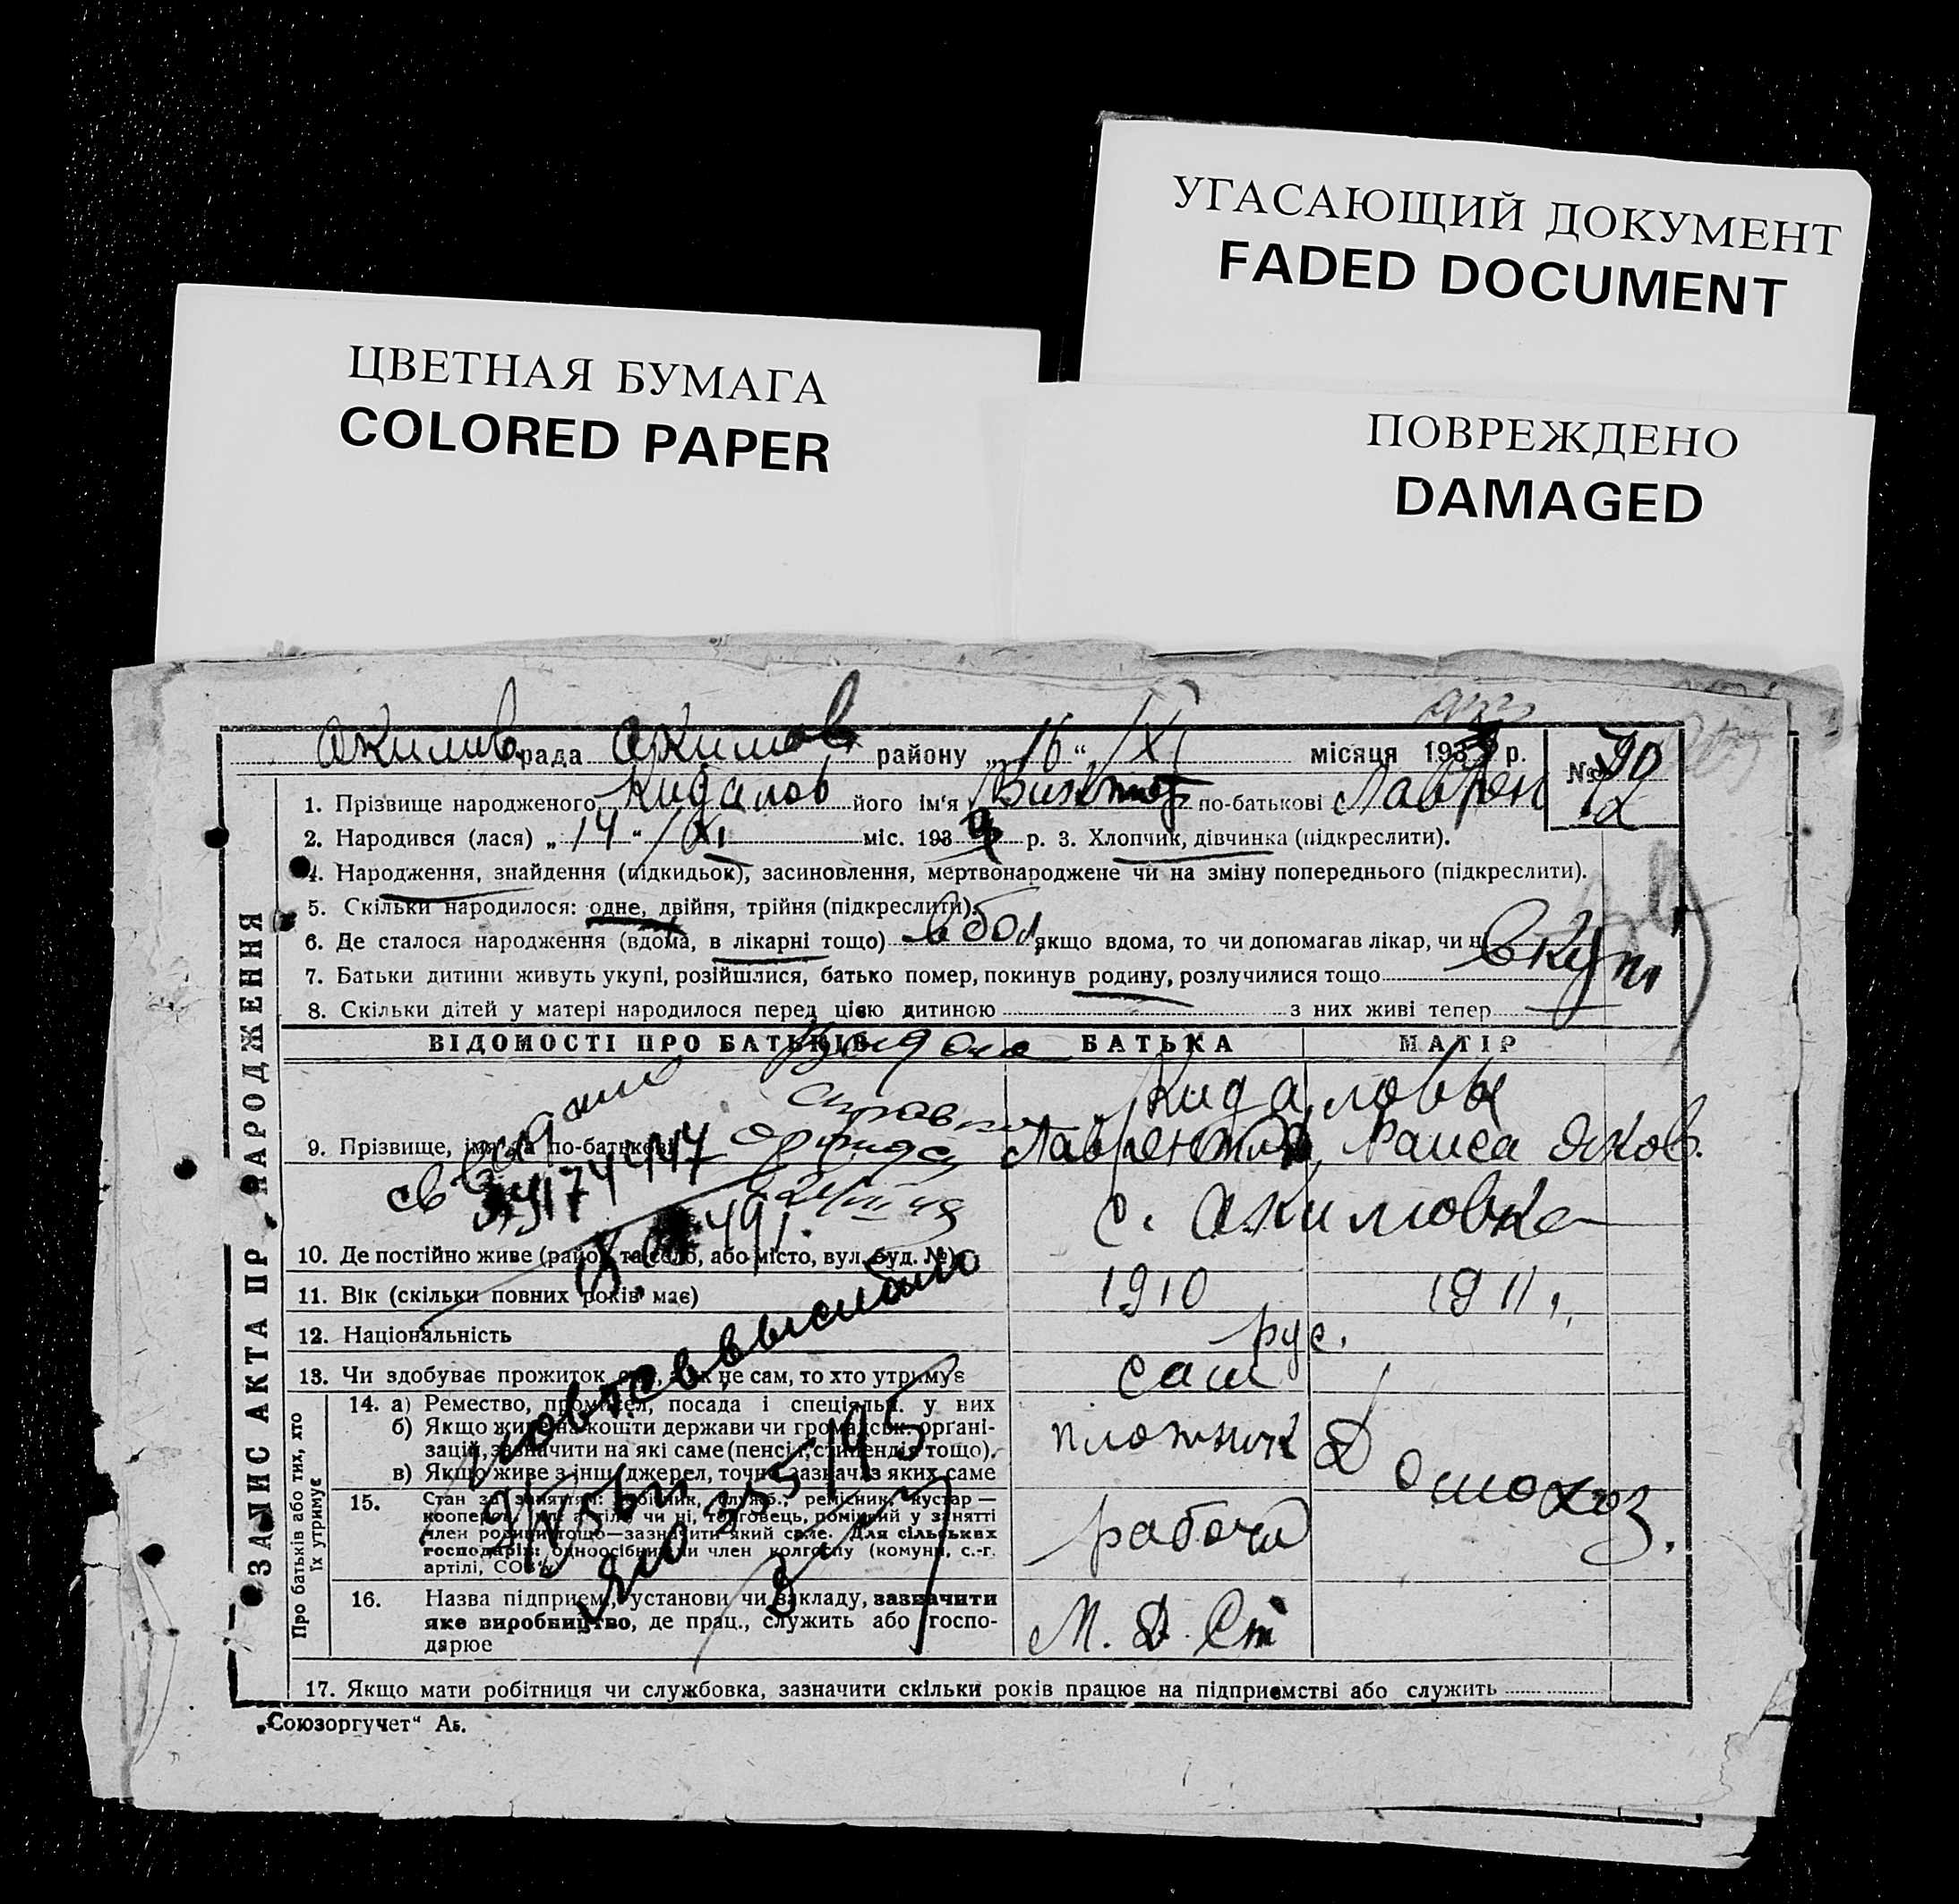 УГАСАЮЩИЙ ДОКУМЕНТ
FADED DOCUMENT
ЦВЕТНАЯ БУМАГА
COLORED PAPER
ПОВРЕЖДЕНО
DAMAGED
Акимов рада Акимов району „16“ XI місяця 193 р. №
1. Прізвище народженого Кидалов його ім'я Виктор по-батькові Лаврен
2. Народився (лася) „14“ XI міс. 193 р. 3. Хлопчик, дівчинка (підкреслити).
4. Народження, знайдення (підкидьок), засиновлення, мертвонароджене чи на зміну попереднього (підкреслити).
5. Скільки народилося: одне, двійня, трійня (підкреслити).
6. Де сталося народження (вдома, в лікарні тощо) в бол якщо вдома, то чи допомагав лікар, чи н
7. Батьки дитини живуть укупі, розійшлися, батько помер, покинув родину, розлучилися тощо вкупі
8. Скільки дітей у матері народилося перед цією дитиною з них живі тепер
ЗАПИС АКТА ПРО НАРОДЖЕННЯ
ВІДОМОСТІ ПРО БАТЬКІВ БАТЬКА МАТІР
Кидаловы
9. Прізвище, ім'я та по-батькові Лаврентий Раиса Яков.
10. Де постійно живе (район та село, або місто, вул. буд. №) с. Акимовка
11. Вік (скільки повних років має) 1910 1911
12. Національність рус.
13. Чи здобуває прожиток сам, а як не сам, то хто утримує сам
Про батьків або тих, хто їх утримує
14. а) Ремество, промисел, посада і спеціяльн. у них плотник Домохоз.
б) Якщо живе на кошти держави чи громадськ. органі-
зацій, зазначити на які саме (пенсія, стипендія тощо).
в) Якщо живе з інш. джерел, точно зазнач. з яких саме
15. Стан за заняттям: робітник, служб., ремісник, кустар — рабочий
член родини тощо—зазначити який саме. Для сільських
господарів: одноосібник чи член колгоспу (комуни, с.-г.
16. Назва підприєм., установи чи закладу, зазначити М. Д. Ст
яке виробництво, де прац., служить або госпо-
дарює
17. Якщо мати робітниця чи службовка, зазначити скільки років працює на підприємстві або служить
„Союзоргучет“ Аб.